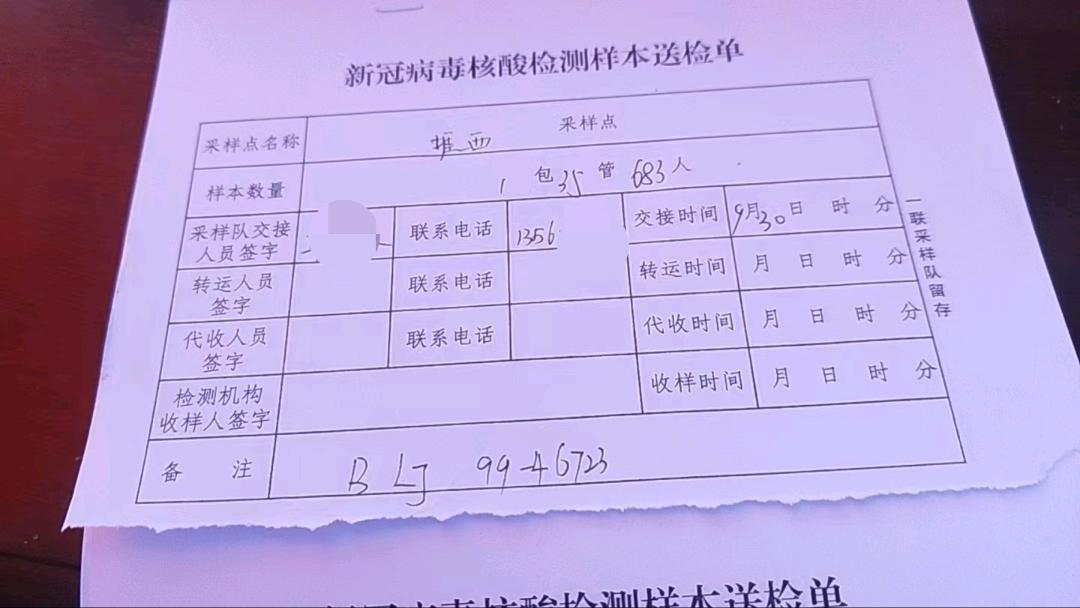 新冠病毒核酸检测样本送检单
采样点名称 堆西 采样点
样本数量 1 包 35 管 683 人
采样队交接 联系电话 1356 交接时间 9月30日 时 分
人员签字
转运人员 联系电话 转运时间 月 日 时 分
签字
代收人员 联系电话 代收时间 月 日 时 分
签字
检测机构 收样时间 月 日 时 分
收样人签字
备注 B LJ 99-46723
一联采样队留存
新冠病毒核酸检测样本送检单